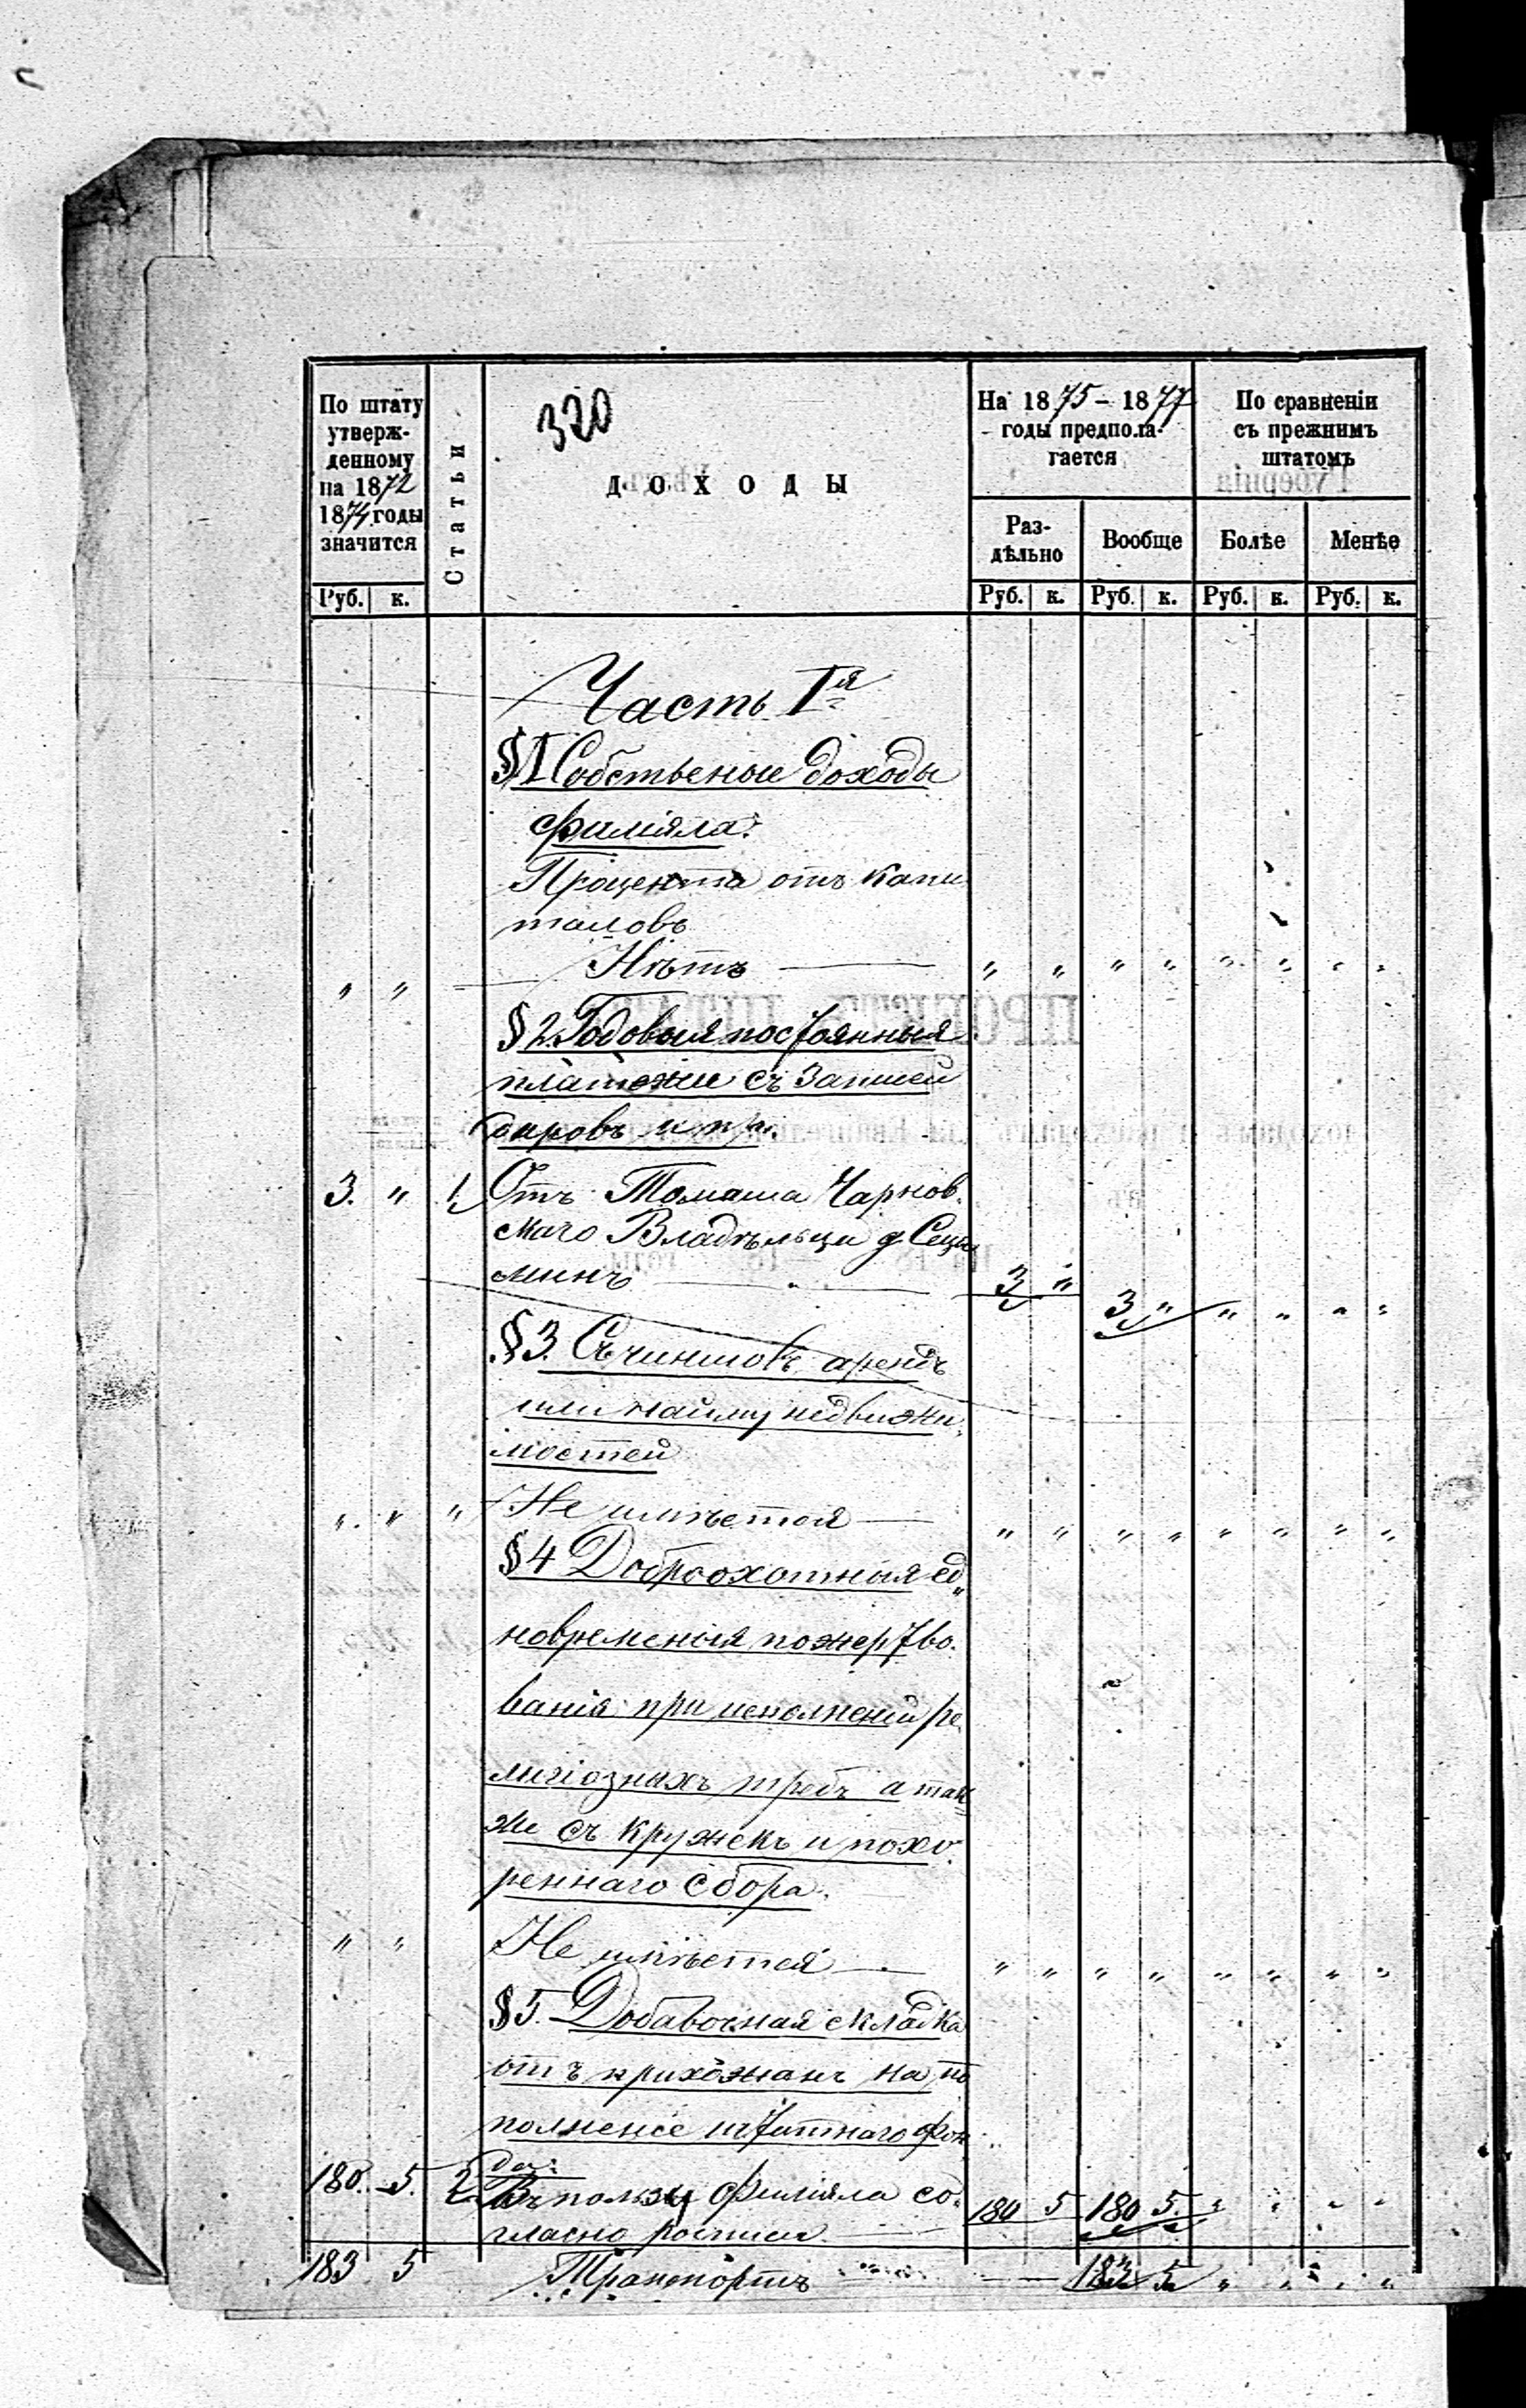 По штату
утверж-
денному
на 1872
1874 годы
значится
Руб. к.
Статьи
320
ДОХОДЫ
На 1875 – 1877
годы предпола-
гается
Раз-
дѣльно
Вообще
Руб. к. Руб. к.
По сравненіи
съ прежнимъ
штатомъ
Болѣе Менѣе
Руб. к. Руб. к.
Часть Iя
§1 Собственые доходы
филіяла.
Процента отъ капи
таловъ
" " Нѣтъ — " " " " " " " "
§ 2. Годовыя постоянныя
платежи съ записей
даровъ и пр.
3. " 1. Отъ Томаша Чарнов.
скаго Владѣльца д. Сеце
минъ — 3 " 3 " " " " "
§ 3. Съ чиншовъ, арендъ
или найму недвижи,
мостей
" " " Не имѣется — " " " " " " " "
§ 4 Доброохотныя ед„
новременыя пожертво.
ванія при исполненіи ре
лигіозныхъ требъ а так
же съ кружекъ и похо.
реннаго сбора.
" " Не имѣется — " " " " " " " "
§ 5. Добавочная складка
отъ прихожанъ на по
полненіе штатнаго фон
да:
180. 5. 2. Въ пользу филіяла со.
гласно росписи 180 5 180 5 " " " "
183 5 Транспортъ — — 183 5 " " " "